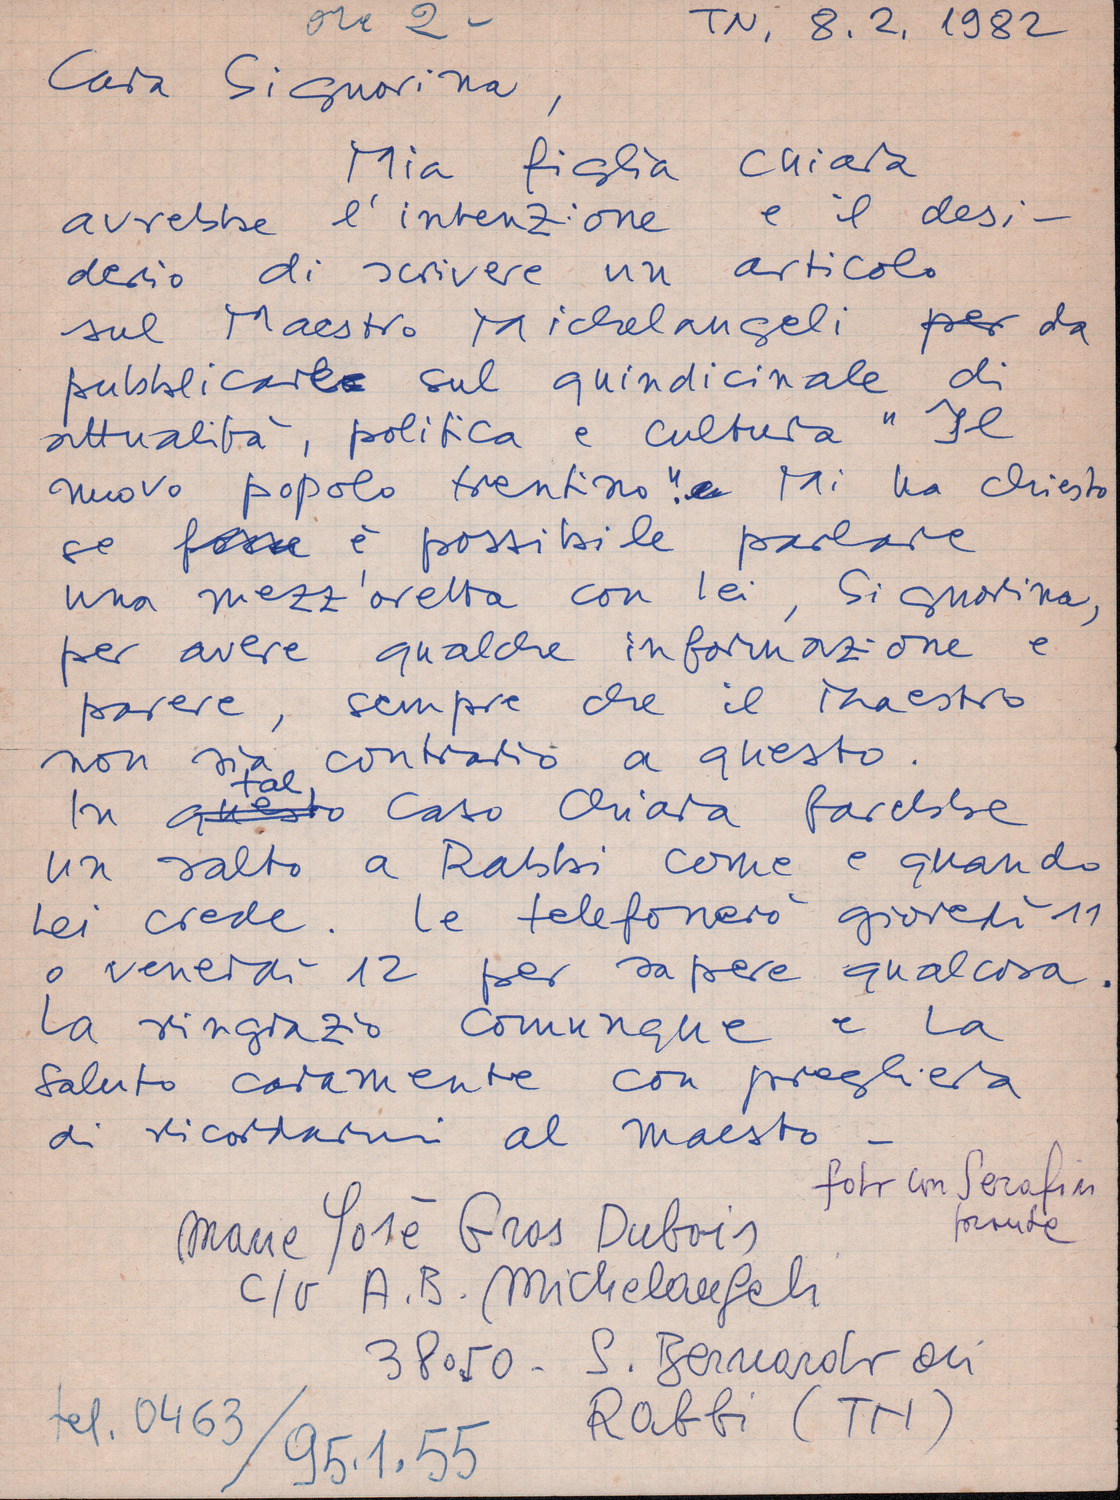 ore 2 -
TN, 8.2.1982
Cara Signorina,
Mia figlia Chiara
avrebbe l'intenzione e il desi-
derio di scrivere un articolo
sul Maestro Michelangeli per da
pubblicare sul quindicinale di
attualità, politica e cultura "Il
nuovo popolo trentino". Mi ha chiesto
se fosse è possibile parlare
una mezz'oretta con lei, Signorina,
per avere qualche informazione e
parere, sempre che il Maestro
non sia contrario a questo.
tal
In questo caso Chiara farebbe
un salto a Rabbi come e quando
Lei crede. Le telefonerò giovedì 11
o venerdì 12 per sapere qualcosa.
La ringrazio comunque e La
saluto caramente con preghiera
di ricordarmi al maesto -
foto con Serafin
Marie Josè Gros Dubois
c/o A.B. Michelangeli
38050 - S. Bernardo di
Rabbi (TN)
tel. 0463/95.1.55